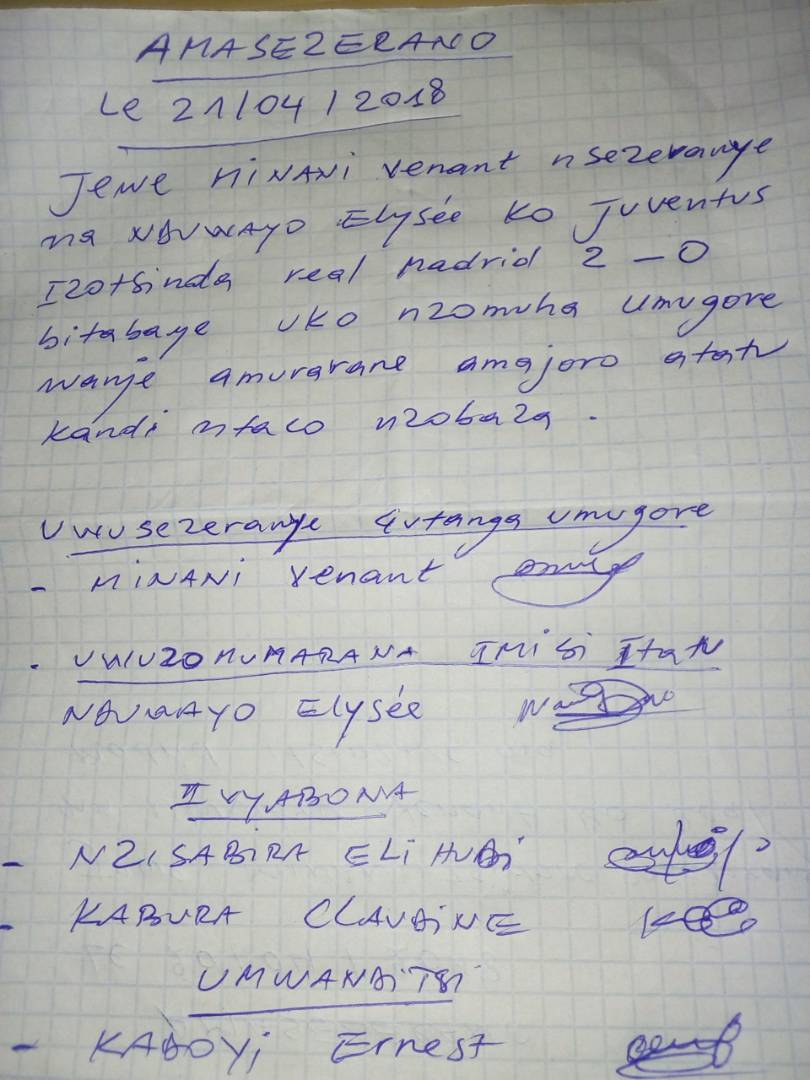 AMASEZERANO
Le 21/04/2018
Jewe MINANI Venant nsezeranye
na NDUWAYO Elysée ko Juventus
Izotsinda real Madrid 2 - 0
bitabaye uko nzomuha umugore
wanje amurarane amajoro atatu
kandi ntaco nzobaza.
Uwusezeranye gutanga umugore
- MINANI Venant
. UWUZOMUMARANA IMISI Itatu
NDUWAYO Elysée
IVYABONA
- NZISABIRA ELIHUDi
- KABURA CLAUDINE
UMWANDITSI
- KADOYi Ernest